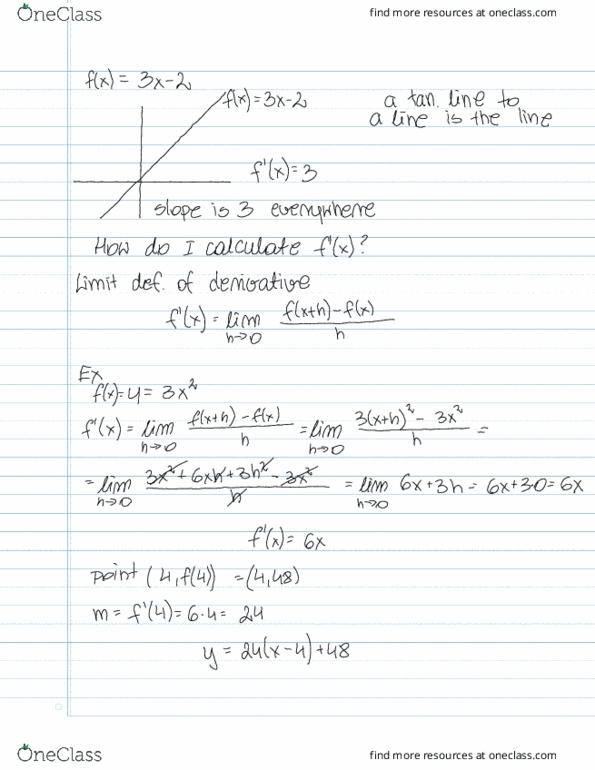 OneClass
find more resources at oneclass.com
f(x) = 3x-2
f(x)=3x-2
a tan. line to
a line is the line
f'(x)=3
slope is 3 everywhere
How do I calculate f'(x)?
Limit def. of derivative
f'(x) = lim h→0 f(x+h)-f(x) / h
Ex
f(x)=y= 3x²
f'(x) = lim h→0 f(x+h)-f(x) / h = lim h→0 3(x+h)² - 3x² / h =
= lim h→0 3x²+6xh+3h²-3x² / h = lim h→0 6x+3h = 6x+3·0=6x
f'(x)= 6x
point (4,f(4)) =(4,48)
m= f'(4)= 6·4= 24
y = 24(x-4)+48
OneClass
find more resources at oneclass.com